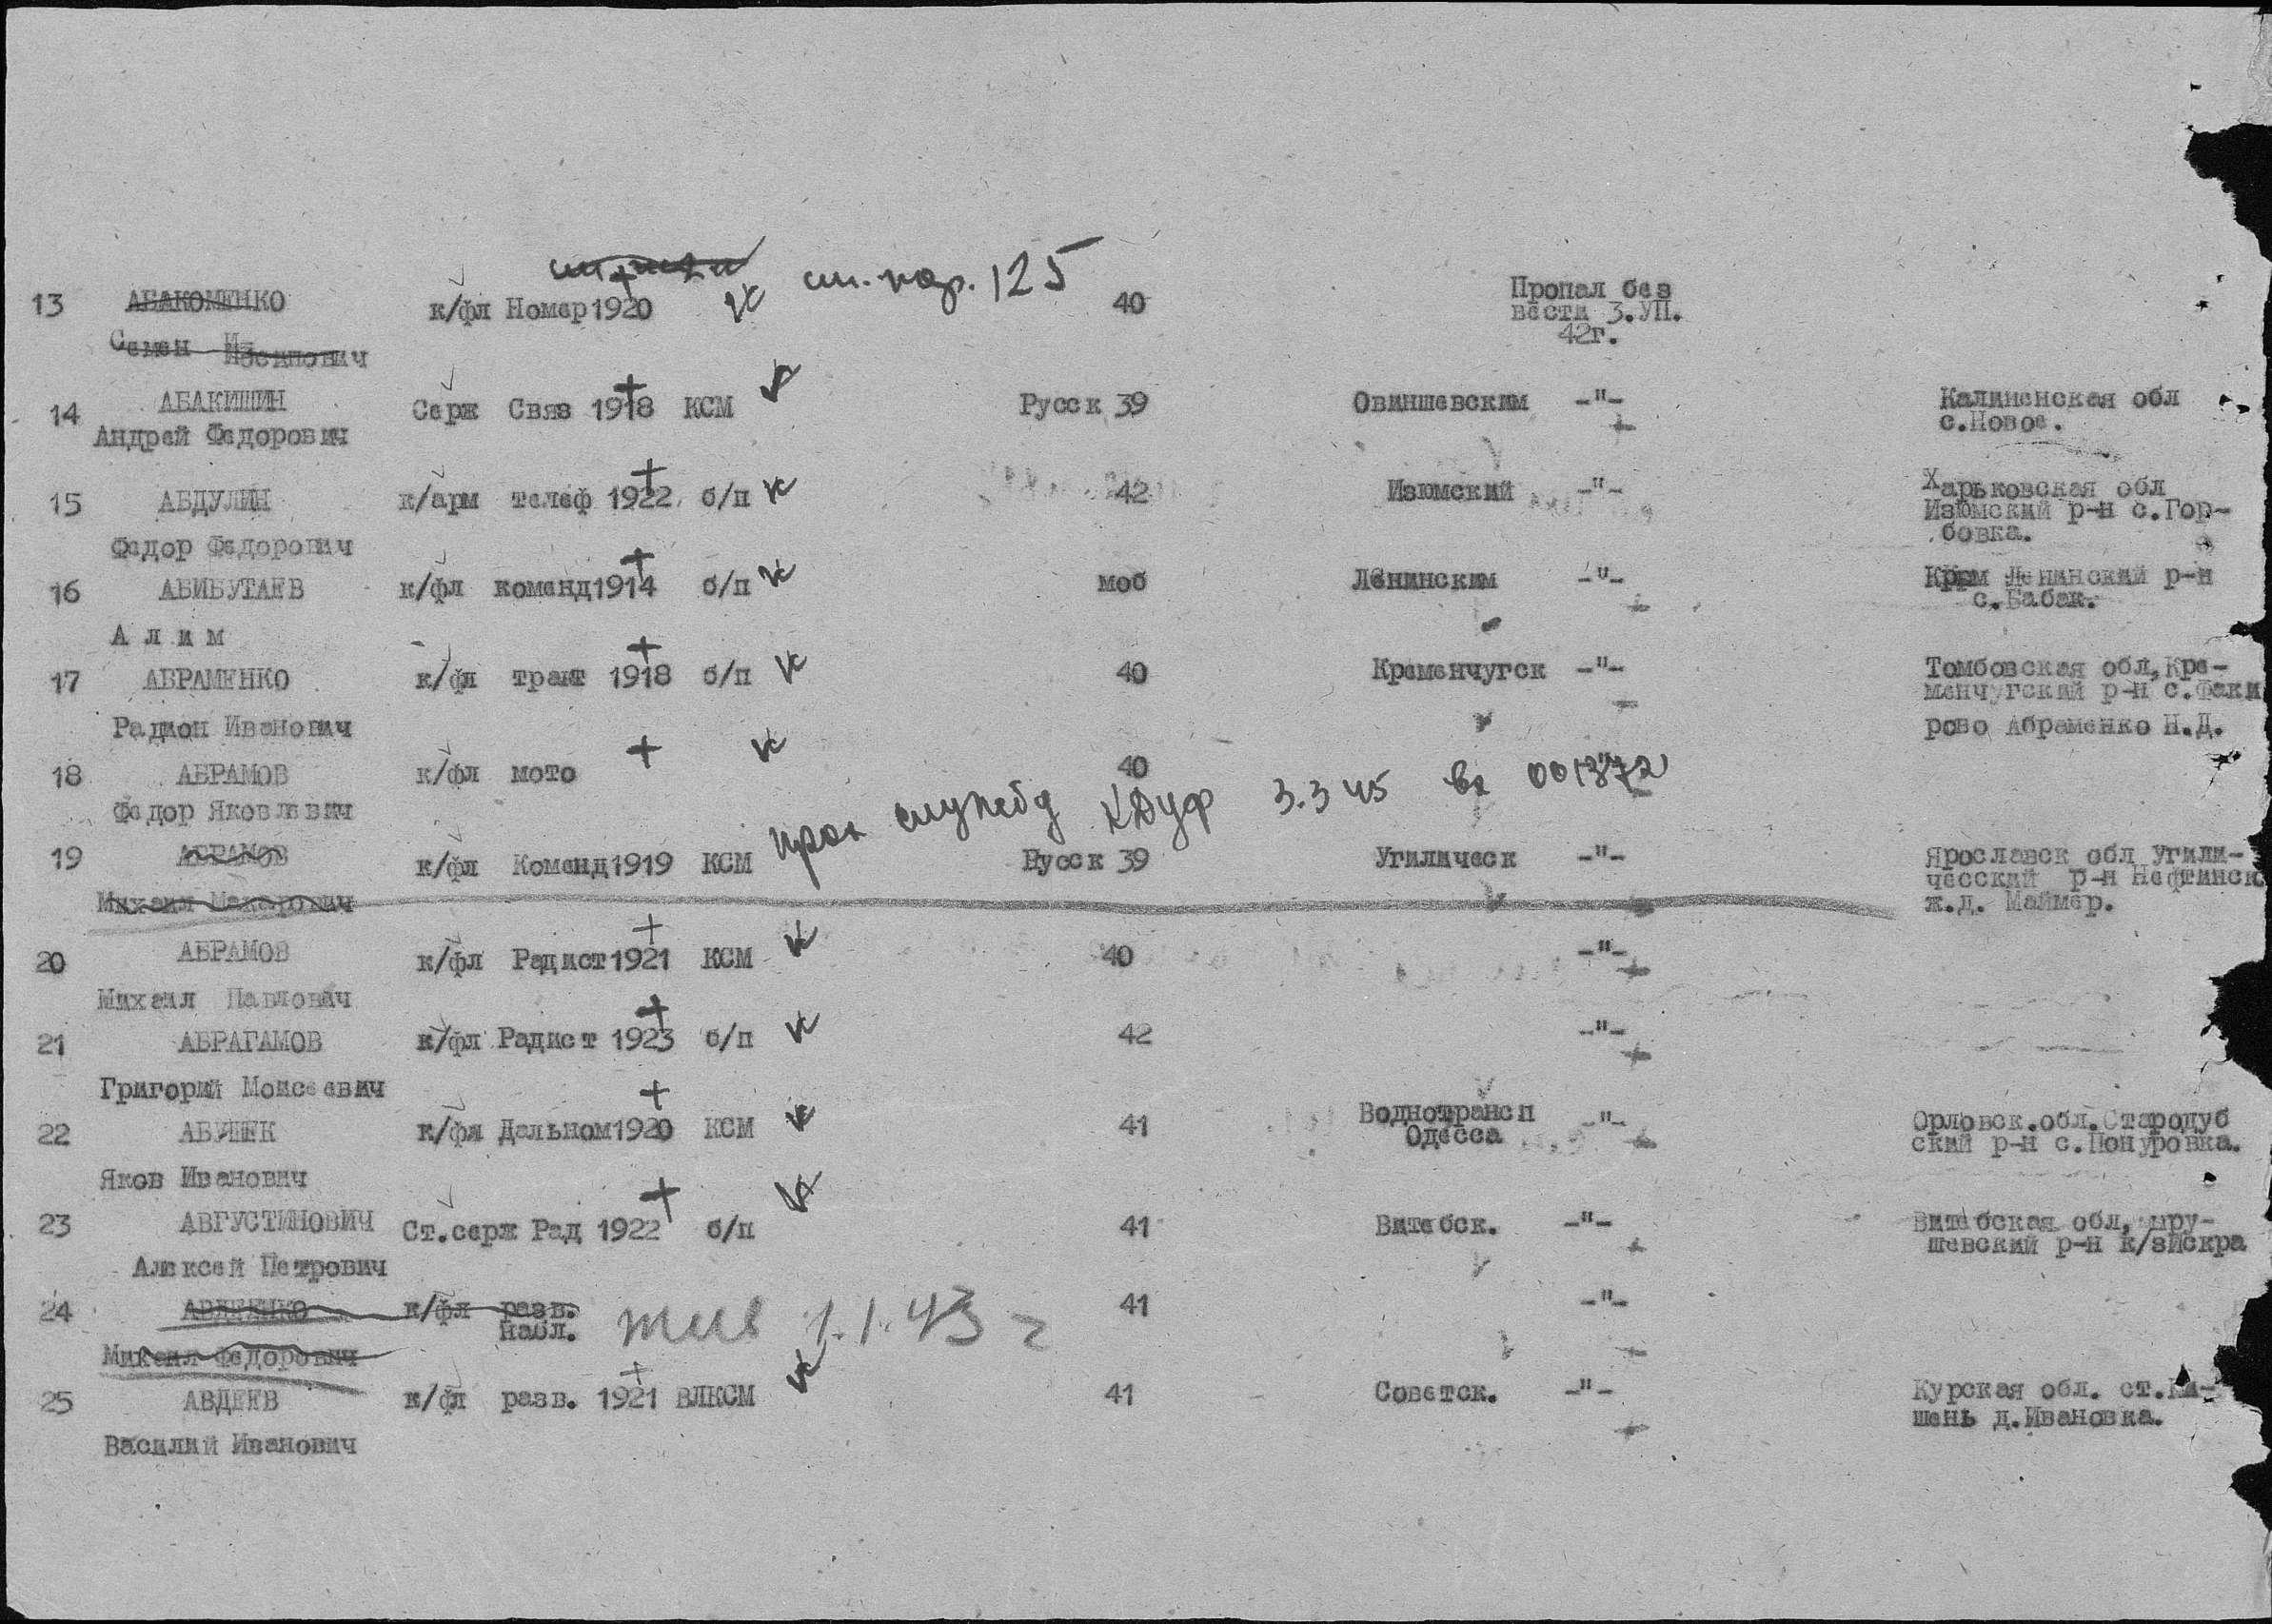 см. пор. 125
13 АБАКОМЕНКО к/фл Номер 1920 40 Пропал без
вести 3.УП.
42г.
Семен
14 АБАКИШИН Серж Связ 1918 КСМ Русск 39 Овиншевским -"- Калиненская обл
Андрей Федорович с.Новое.
15 АБДУЛИН к/арм телеф 1922 б/п 42 Изюмский -"- Харьковская обл
Изюмский р-н с.Гор-
Федор Федорович бовка.
16 АБИБУТАЕВ к/фл команд 1914 б/п моб Ленинским -"- Крым Ленинский р-н
с.Бабак.
Алим
17 АБРАМЕНКО к/фл тракт 1918 б/п 40 Кременчугск -"- Томбовская обл,Кре-
менчугский р-н с.Факи
Радион Иванович рово Абраменко Н.Д.
18 АБРАМОВ к/фл мото 40
Федор Яковлевич
прох службу 3.3 45 вх
19 АБРАМОВ к/фл Команд 1919 КСМ Русск 39 Угилическ -"- Ярославск обл Угили-
чесский р-н Нефтинск
Михаил Макарович ж.д. Маймер.
20 АБРАМОВ к/фл Радист 1921 КСМ 40 -"-
Михаил Павлович
21 АБРАГАМОВ к/фл Радист 1923 б/п 42 -"-
Григорий Моисеевич
22 АБУШЕК к/фл Дальном 1920 КСМ 41 Воднотрансп -"- Орловск.обл.Стародуб
Одесса ский р-н с.Понуровка.
Яков Иванович
23 АВГУСТИНОВИЧ Ст.серж Рад 1922 б/п 41 Витебск. -"- Витебская обл,
шевский р-н к/зИскра
Алексей Петрович
24 АВДЕЕНКО к/фл разв. жив 1.1.43 г 41 -"-
набл.
Михаил Федорович
25 АВДЕЕВ к/фл разв. 1921 ВЛКСМ 41 Советск. -"- Курская обл. ст.
шень д.Ивановка.
Василий Иванович